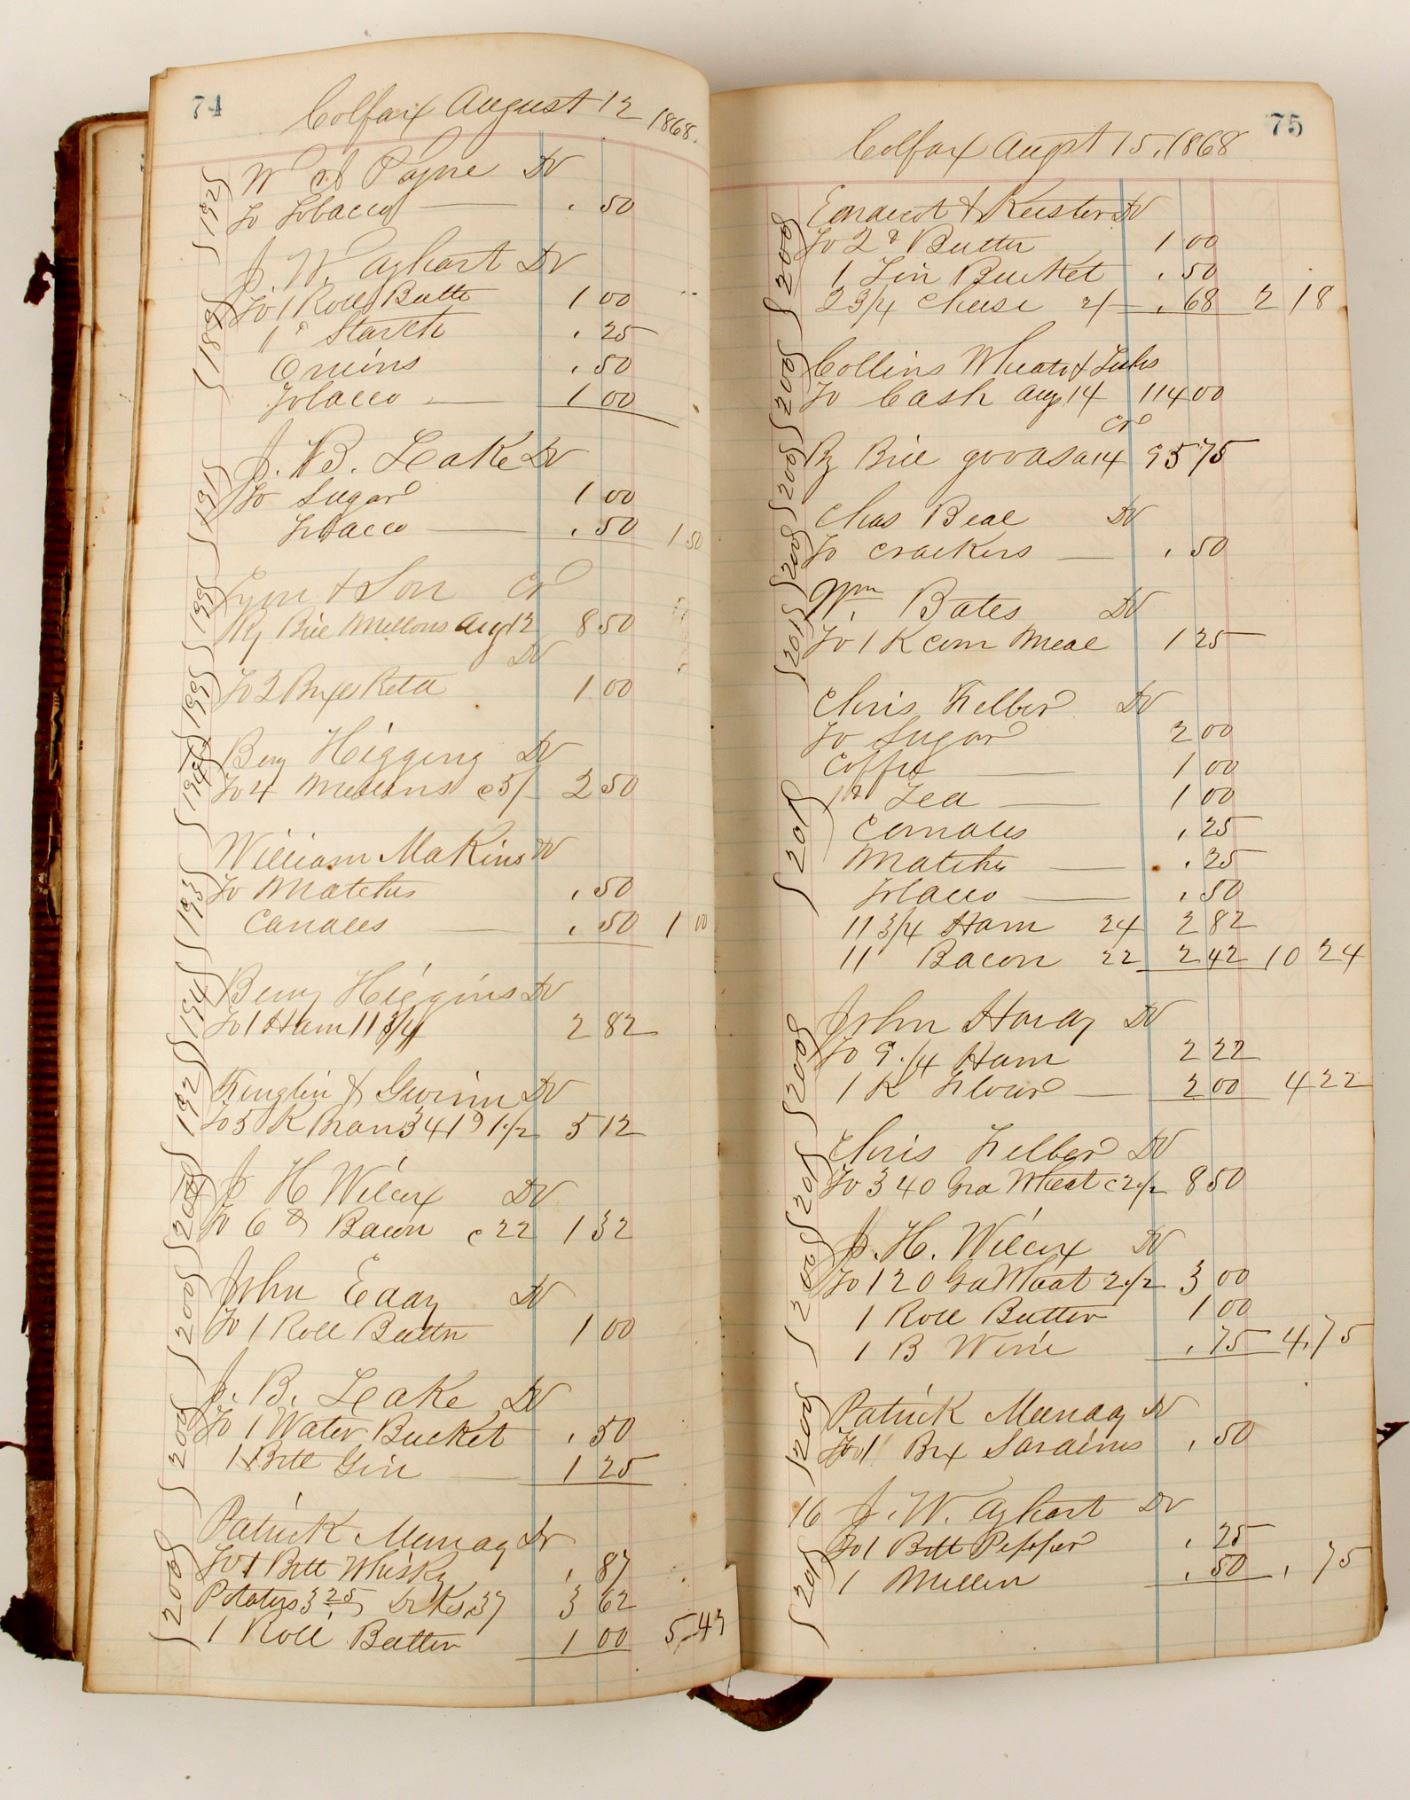 74
Colfax August 12 1868.
192 W A Payne Dr
To Tobacco . 50
J. W. Ayhart Dr
189 To 1 Roll Butter 1 00
1 lb Starch . 25
Onions . 50
Tobacco 1 00
J. B. Leake Dr
191 To Sugar 1 00
Tobacco . 50 1 50
& Son Cr
199 By Bill Mellons Aug 12 8 50
Dr
199 To 2 Boxes 1 00
Benj Higgins Dr
194 To 4 Mellons c 5/ 2 50
William Makins Dr
193 To Matches . 50
Candles . 50 1 00
Benj Higgins Dr
194 To 1 Ham 11 3/4 2 82
& Gwinn Dr
192 To 5 K Bran 341 @ 1 1/2 5 12
J H Wilcox Dr
200 To 6 lb Bacon c 22 1 32
John Eddy Dr
200 To 1 Roll Butter 1 00
J. B. Leake Dr
200 To 1 Water Bucket . 50
1 Bttl Gin 1 25
Patrick Munday Dr
200 To 1 Bttl Whisky . 87
Potatoes 3 25 Drks 37 3 62
1 Roll Butter 1 00 5,49
75
Colfax Augst 15, 1868
& Keister Dr
200 To 2 lb Butter 1 00
1 Tin Bucket . 50
2 3/4 Cheese 2/ . 68 2 18
Collins Wheats &
200 To Cash Aug 14 114 00
Cr
200 By Bill goods a 14 95 75
Chas Beal Dr
200 To Crackers . 50
Wm. Bates Dr
201 To 1 K Corn Meal 1 25
Chris Felber Dr
To Sugar 2 00
Coffee 1 00
1 lb Tea 1 00
201 Candles . 25
Matches . 25
Tobacco . 50
11 3/4 Ham 24 2 82
11 Bacon 22 2 42 10 24
John Hardy Dr
200 To 9 1/4 Ham 2 22
1 K Flour 2 00 4 22
Chris Felber Dr
201 To 340 Gra Wheat c 2 1/2 8 50
J. H. Wilcox Dr
200 To 120 Gra Wheat 2 1/2 3 00
1 Roll Butter 1 00
1 B Wine . 75 4,75
Patrick Munday Dr
200 To 1 Bx Sardines . 50
16 J. W. Ayhart Dr
To 1 Bttl Pepper . 25
201 1 Mellon . 50 . 75